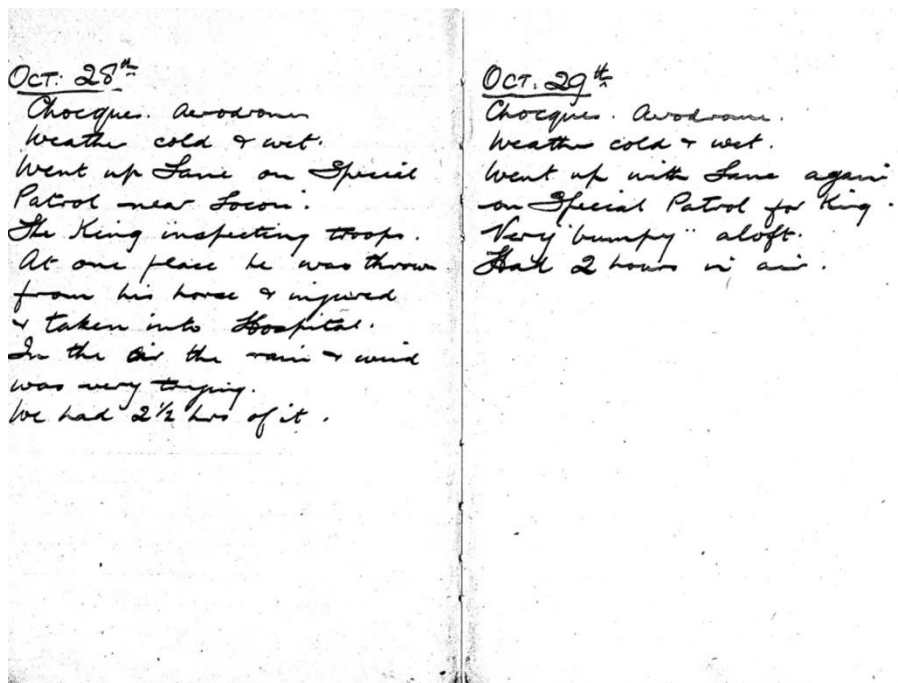 OCT: 28th
Chocques. Aerodrome
Weather cold & wet.
Went up Lane on Special
Patrol near Locon.
The King inspecting troops.
At one place he was thrown
from his horse & injured
& taken into Hospital.
In the air the rain & wind
was very trying.
We had 2 1/2 hrs of it.
OCT. 29th
Chocques. Aerodrome.
Weather cold & wet.
Went up with Lane again
on Special Patrol for King.
Very "bumpy" aloft.
Had 2 hours in air.